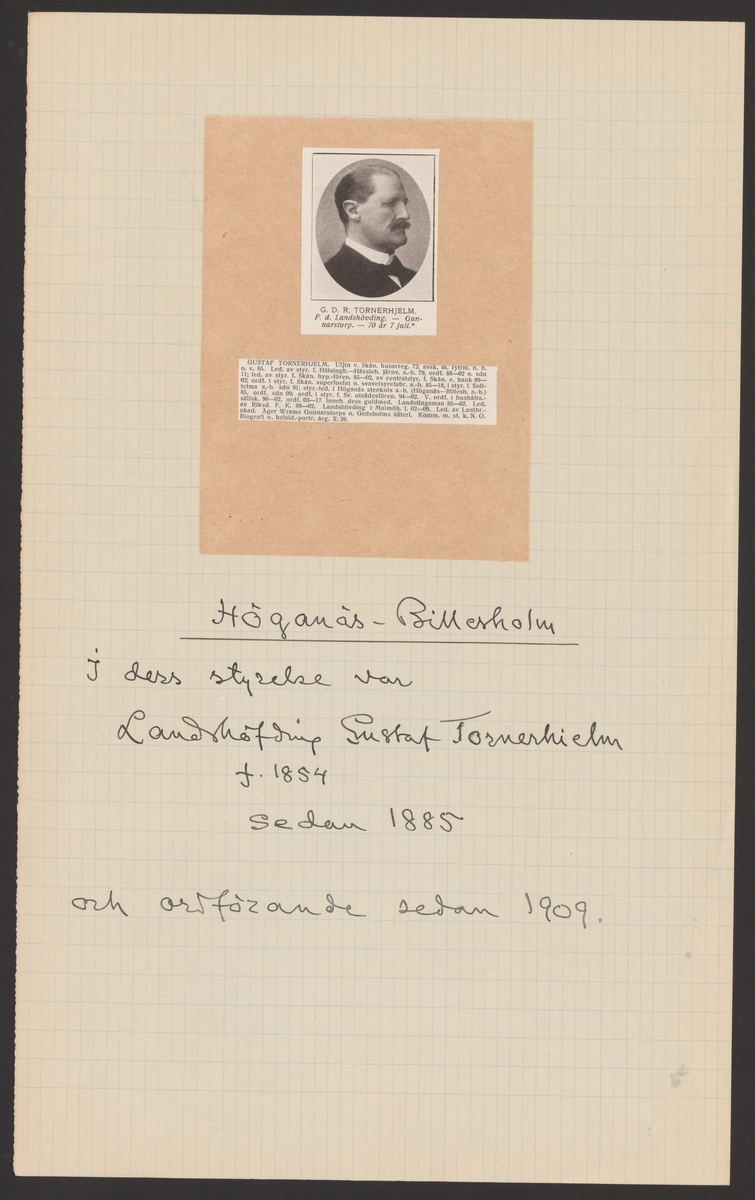 G. D. R. TORNERHJELM.
F. d. Landshövding. — Gun-
narstorp. — 70 år 7 juli.*
GUSTAF TORNERHJELM. Utjtn v. Skån. husarreg. 72; avsk. m. ryttm. n. h.
o. v. 85. Led. av styr. f. Hälsingb.—Hässleh. järnv. a.-b. 79, ordf. 88—02 o. sdn
11; led. av styr. f. Skån. hyp.-fören. 85—02, av centralstyr. f. Skån. e. bank 89—
02, ordf. i styr. f. Skån. superfosfat o. svavelsyrefabr. a.-b. 85—18, i styr. f. Soll-
telma a.-b. sdn 91; styr.-led. i Höganäs stenkols a.-b. (Höganäs—Billesh. a.-b.)
85, ordf. sdn 09; ordf. i styr. f. Sv. utsädesfören. 94—02. V. ordf. i hushålln.-
sällsk. 98—02, ordf. 03—17 inneh. dess guldmed. Landstingsman 85—02. Led.
av Riksd. F. K. 89—02. Landshövding i Malmöh. l. 02—09. Led. av Lantbr.-
akad. Äger Wrams Gunnarstorps o. Gedsholms säteri. Komm. m. st. k. N. O.
Biografi o. helsid.-portr. årg. X: 39.
Höganäs - Billesholm
I dess styrelse var
Landshöfding Gustaf Tornerhielm
f. 1854
sedan 1885
och ordförande sedan 1909.